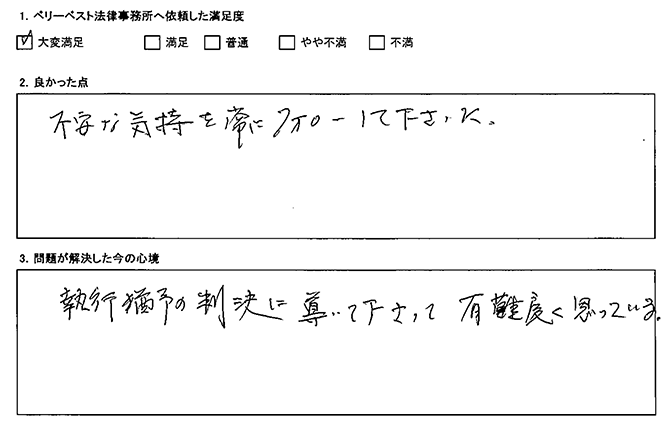 1. ベリーベスト法律事務所へ依頼した満足度
☑ 大変満足 □ 満足 □ 普通 □ やや不満 □ 不満
2. 良かった点
不安な気持を常にフォローして下さった。
3. 問題が解決した今の心境
執行猶予の判決に導いて下さって有難度く思っている。